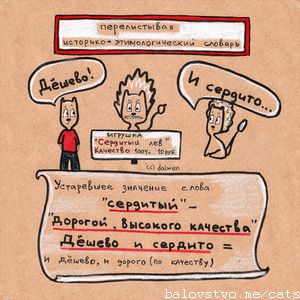 перелистывая
историко-этимологический словарь
Дёшево!
И сердито...
ИГРУШКА
"Сердитый лев"
Качество 100%. 10 руб.
(c) daimon
Устаревшее значение слова
"сердитый" -
"дорогой, высокого качества"
Дёшево и сердито =
и дёшево, и дорого (по качеству)
balovstvo.me/cats